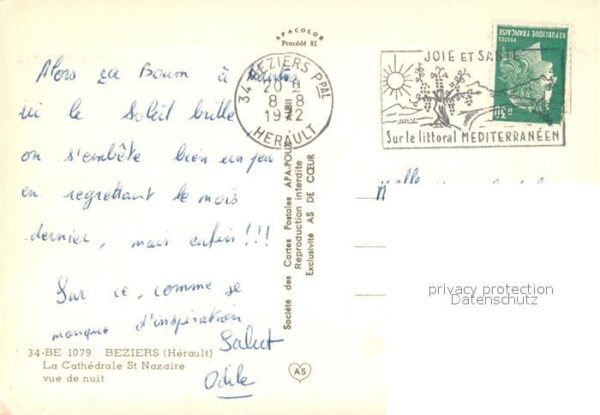 APACOLOR
Procédé 81
Alors ça Boum à
ici le Soleil brille
on s'embête bien un peu
en regrettant le mois
dernier, mais enfin !!!
Sur ce, comme je
manque d'inspiration
Salut
Odile
34-BE 1079 - BEZIERS (Hérault)
La Cathédrale St Nazaire
vue de nuit
34 BEZIERS PPAL
20 H
8 - 8
1972
HERAULT
Société des Cartes Postales APA-POUX
Reproduction interdite
Exclusivité AS DE CŒUR
AS
JOIE ET SANTE
Sur le littoral MEDITERRANÉEN
REPUBLIQUE FRANÇAISE
POSTES
0,30
Melle
privacy protection
Datenschutz